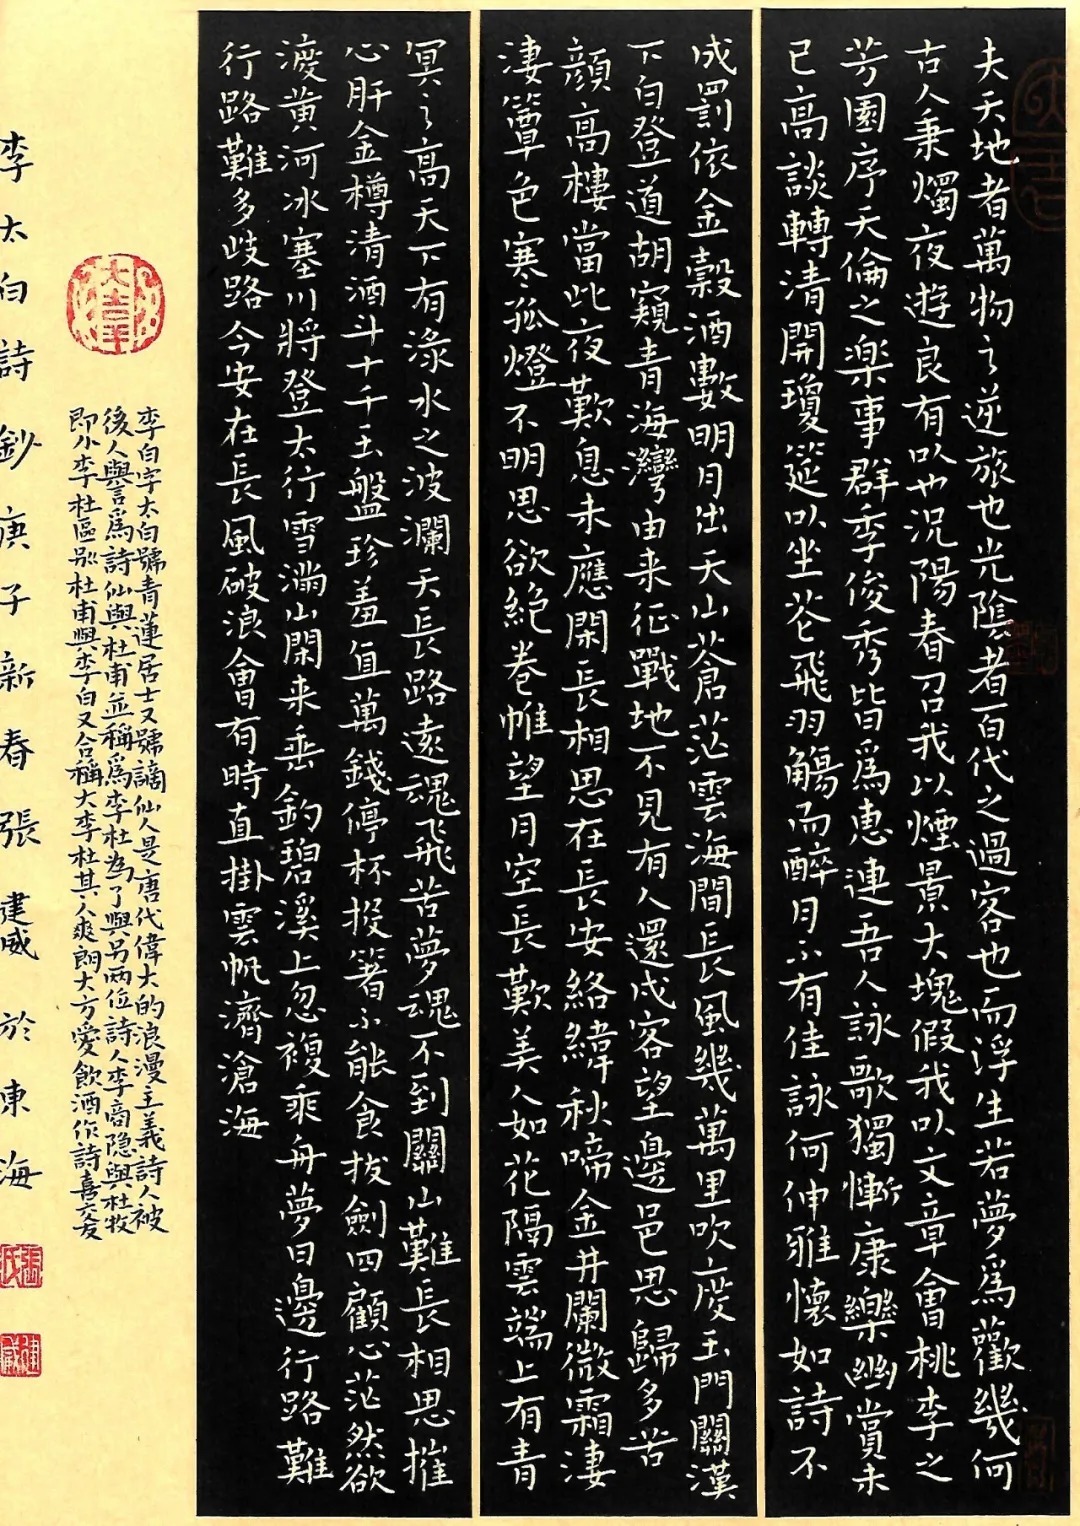 夫天地者萬物之逆旅也光陰者百代之過客也而浮生若夢爲歡幾何
古人秉燭夜遊良有以也況陽春召我以煙景大塊假我以文章會桃李之
芳園序天倫之樂事群季俊秀皆爲惠連吾人詠歌獨慚康樂幽賞未
已高談轉清開瓊筵以坐花飛羽觴而醉月不有佳詠何伸雅懷如詩不
成罰依金穀酒數明月出天山蒼茫雲海間長風幾萬里吹度玉門關漢
下白登道胡窺青海灣由来征戰地不見有人還戍客望邊邑思歸多苦
顔高樓當此夜歎息未應閑長相思在長安絡緯秋啼金井闌微霜淒
淒簟色寒孤燈不明思欲絕卷帷望月空長歎美人如花隔雲端上有青
冥之高天下有淥水之波瀾天長路遠魂飛苦夢魂不到關山難長相思摧
心肝金樽清酒斗十千玉盤珍羞值萬錢停杯投箸不能食拔劍四顧心茫然欲
渡黄河冰塞川將登太行雪滿山閑来垂釣碧溪上忽複乘舟夢日邊行路難
行路難多歧路今安在長風破浪會有時直掛雲帆濟滄海
李白字太白號青蓮居士又號謫仙人是唐代偉大的浪漫主義詩人被
後人與言爲詩仙與杜甫並稱爲李杜为了與另兩位詩人李商隐與杜牧
即小李杜區别杜甫與李白又合稱大李杜其人爽朗大方愛飲酒作詩喜交友
李太白詩鈔庚子新春張建威於東海
張氏
建威